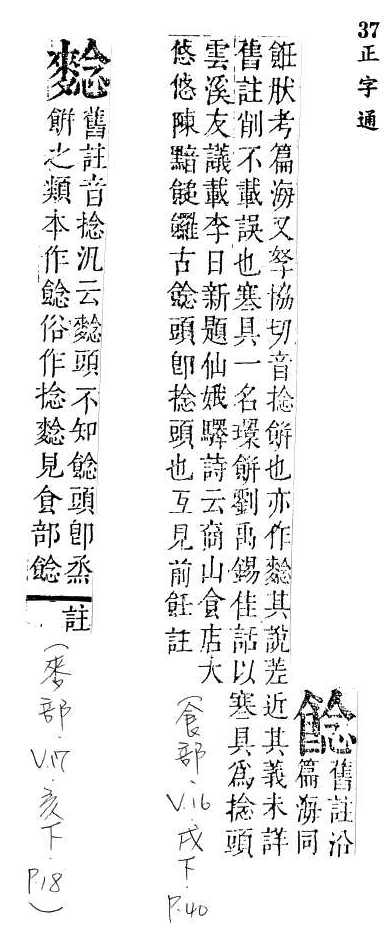 37正字通
䬯舊註沿
篇海同
飪狀考篇海又孥協切音捻餅也亦作䴴其說差近其義未詳
舊註削不載誤也寒具一名環餅劉禹錫佳話以寒具為捻頭
雲溪友議載李日新題仙娥驛詩云商山食店大
悠悠陳黯䭔饠古䬯頭即捻頭也互見前飪註
(食部、V.16.戌下.P.40
䴴舊註音捻汎云䴴頭不知䬯頭即烝
餅之類本作䬯俗作捻䴴見食部䬯
註
(麥部.V.17.亥下.P.18)